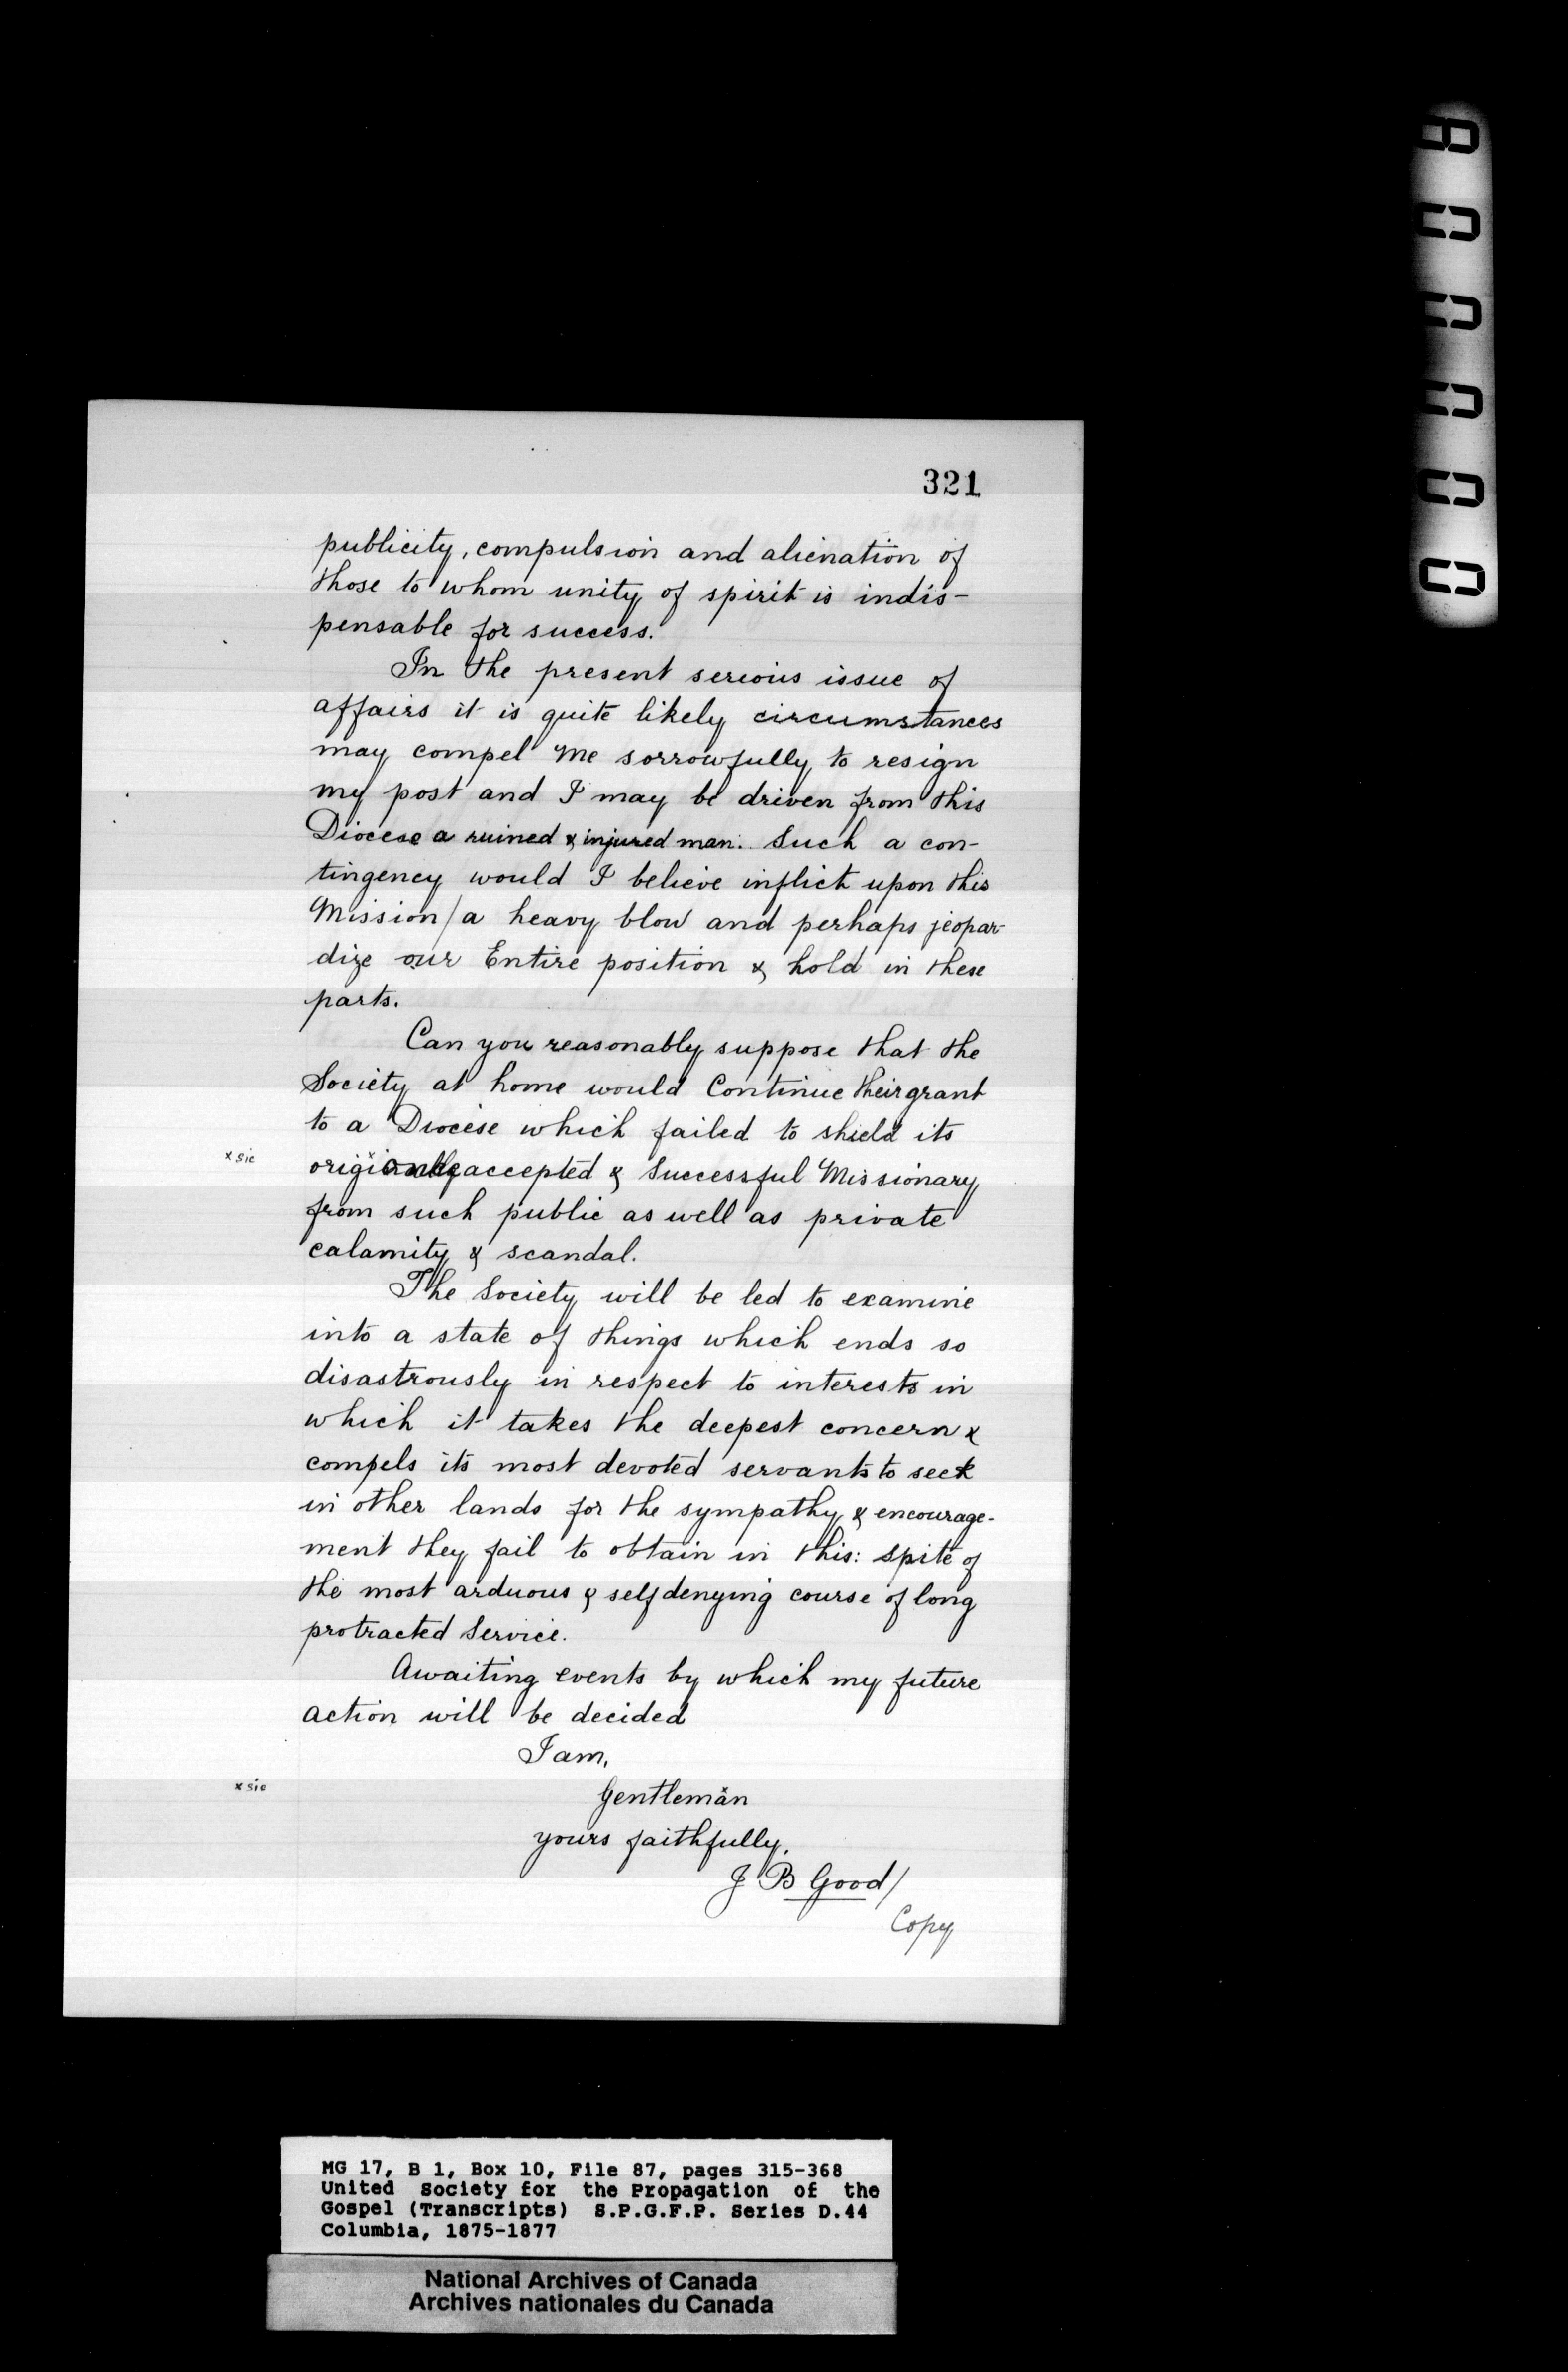 321
publicity, compulsion and alienation of
those to whom unity of spirit is indis-
pensable for success.
In the present serious issue of
affairs it is quite likely circumstances
may compel me sorrowfully to resign
my post and I may be driven from this
Diocese a ruined & injured man. Such a con-
tingency would I believe inflict upon this
Mission/a heavy blow and perhaps jeopar-
dize our Entire position & hold in these
parts.
Can you reasonably suppose that the
Society at home would Continue their grant
to a Diocese which failed to shield its
x sic
accepted & Successful Missionary
from such public as well as private
calamity & scandal.
The Society will be led to examine
into a state of things which ends so
disastrously in respect to interests in
which it takes the deepest concern &
compels its most devoted servants to seek
in other lands for the sympathy & encourage-
ment they fail to obtain in this: spite of
the most arduous & self denying course of long
protracted Service.
Awaiting events by which my future
action will be decided
I am,
x sic
Gentlemxan
yours faithfully,
J B Good/
Copy
MG 17, B 1, Box 10, File 87, pages 315-368
United Society for the Propagation of the
Gospel (Transcripts) S.P.G.F.P. Series D.44
Columbia, 1875-1877
National Archives of Canada
Archives nationales du Canada